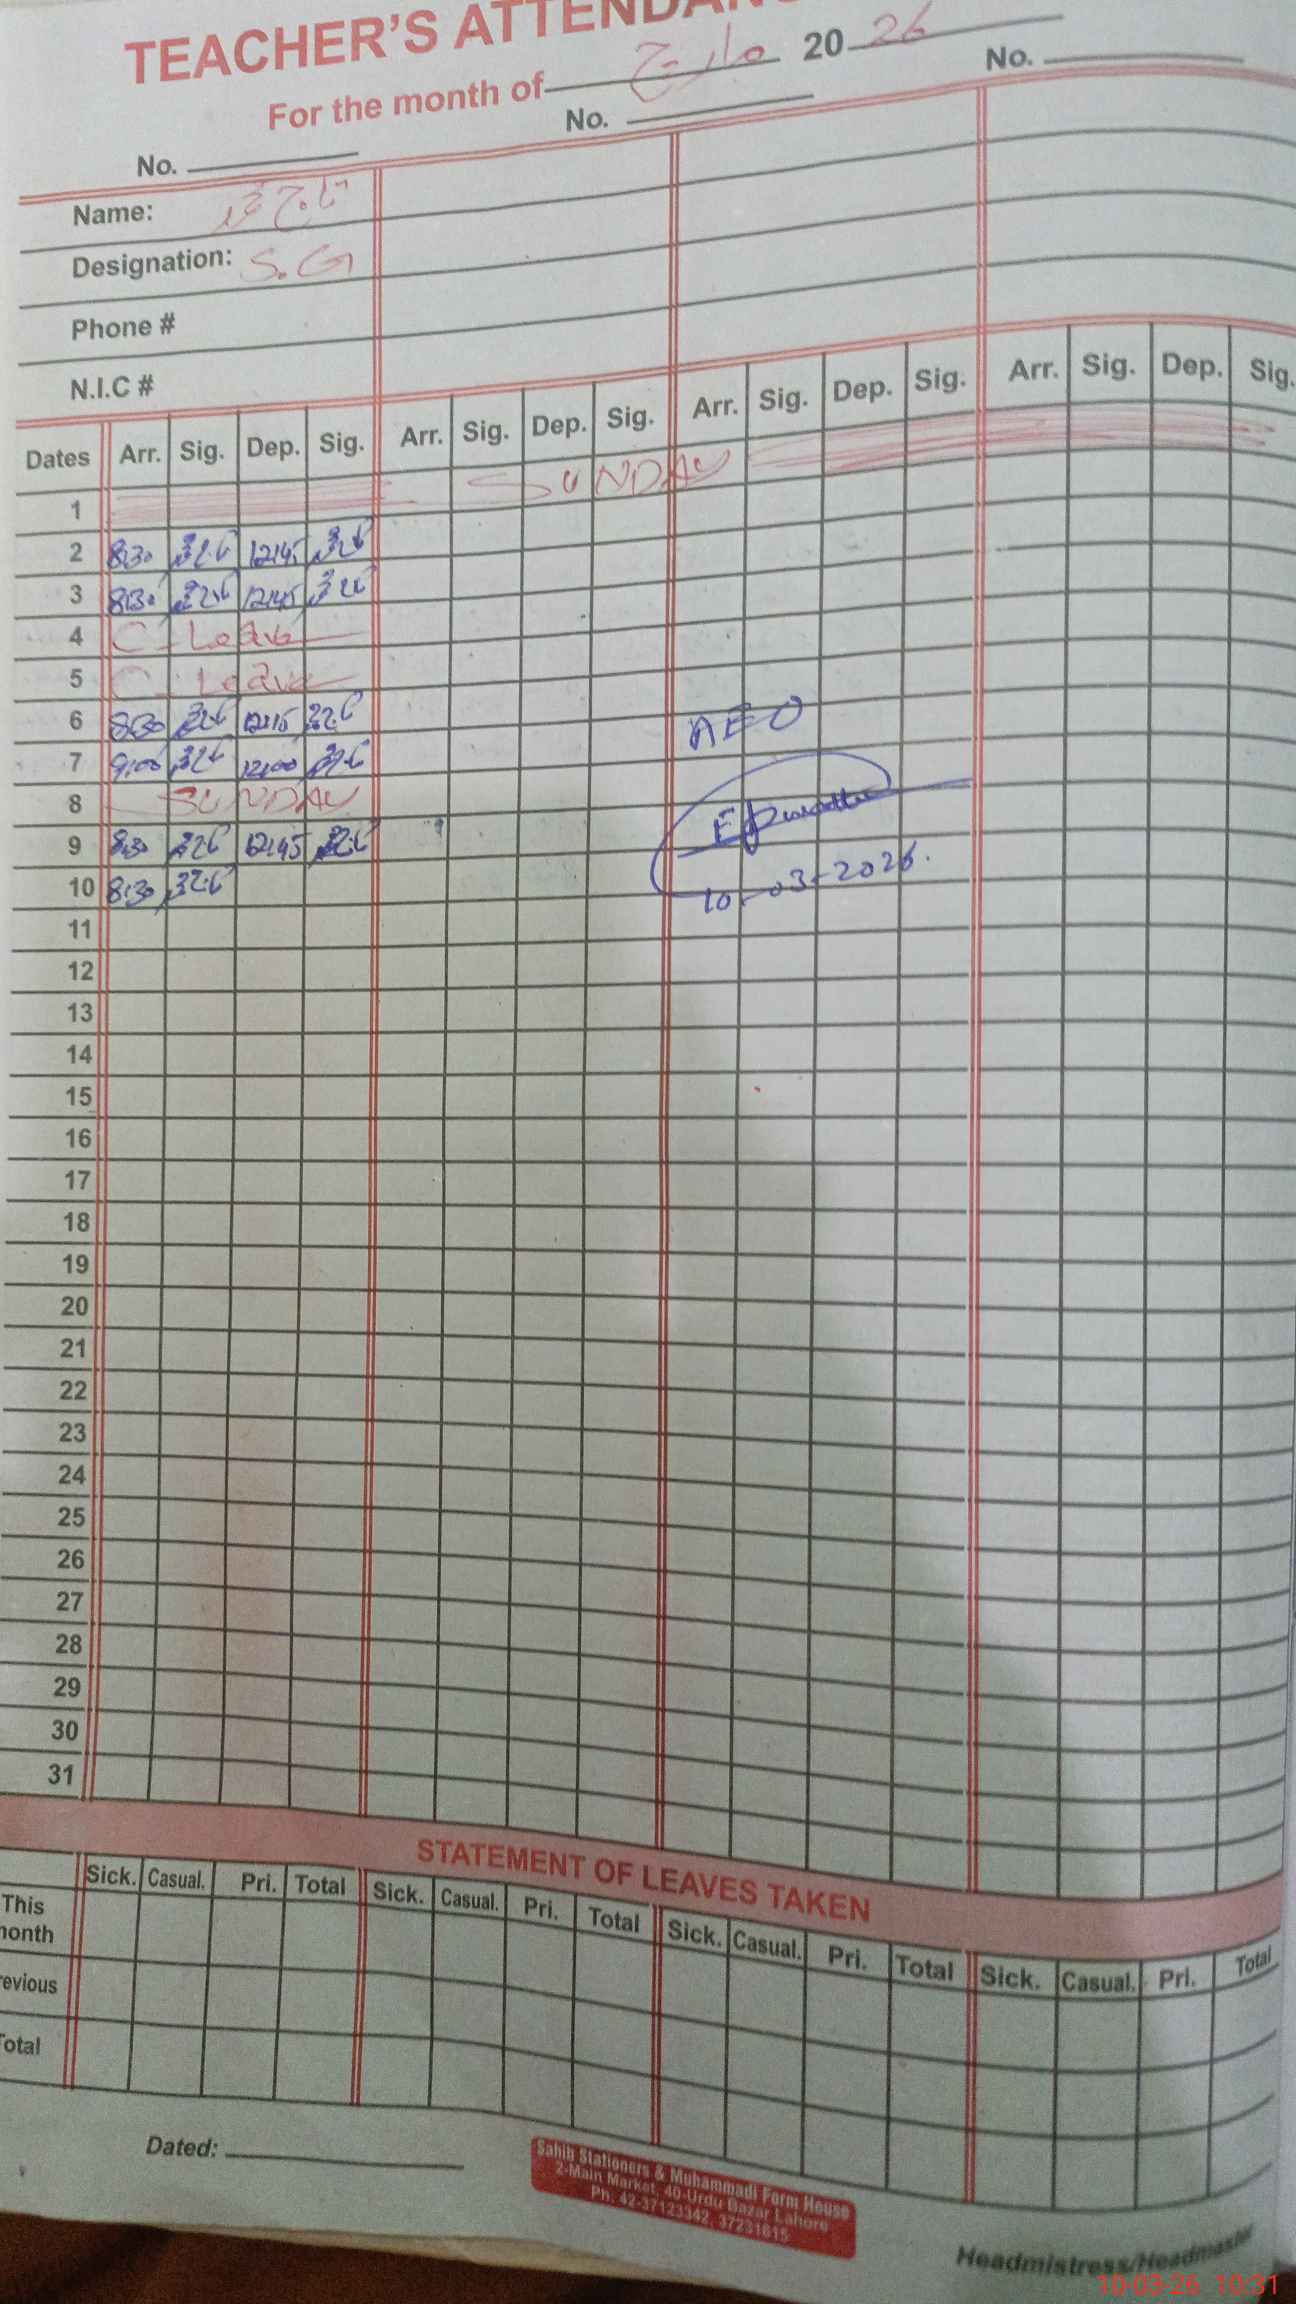 TEACHER'S ATTENDANC
For the month of مارچ 2026
No. No. No.
Name:
Designation: S.G
Phone #
N.I.C #
Dates Arr. Sig. Dep. Sig. Arr. Sig. Dep. Sig. Arr. Sig. Dep. Sig. Arr. Sig. Dep. Sig.
1 SUNDAY
2 8:30 12:45
3 8:30 12:45
4 C-Leave
5 C-Leave
6 8:30 12:15
AEO
7 9:00 12:00
8 SUNDAY
9 8:30 12:45
10 8:30
10-03-2026.
11
12
13
14
15
16
17
18
19
20
21
22
23
24
25
26
27
28
29
30
31
STATEMENT OF LEAVES TAKEN
Sick. Casual. Pri. Total Sick. Casual. Pri. Total Sick. Casual. Pri. Total Sick. Casual. Pri. Total
This
onth
evious
otal
Dated:
Sahib Stationers & Muhammadi Form House
2-Main Market, 40-Urdu Bazar Lahore
Ph: 42-37123342, 37231615
Headmistress/Headmaster
10-03-26 10:31